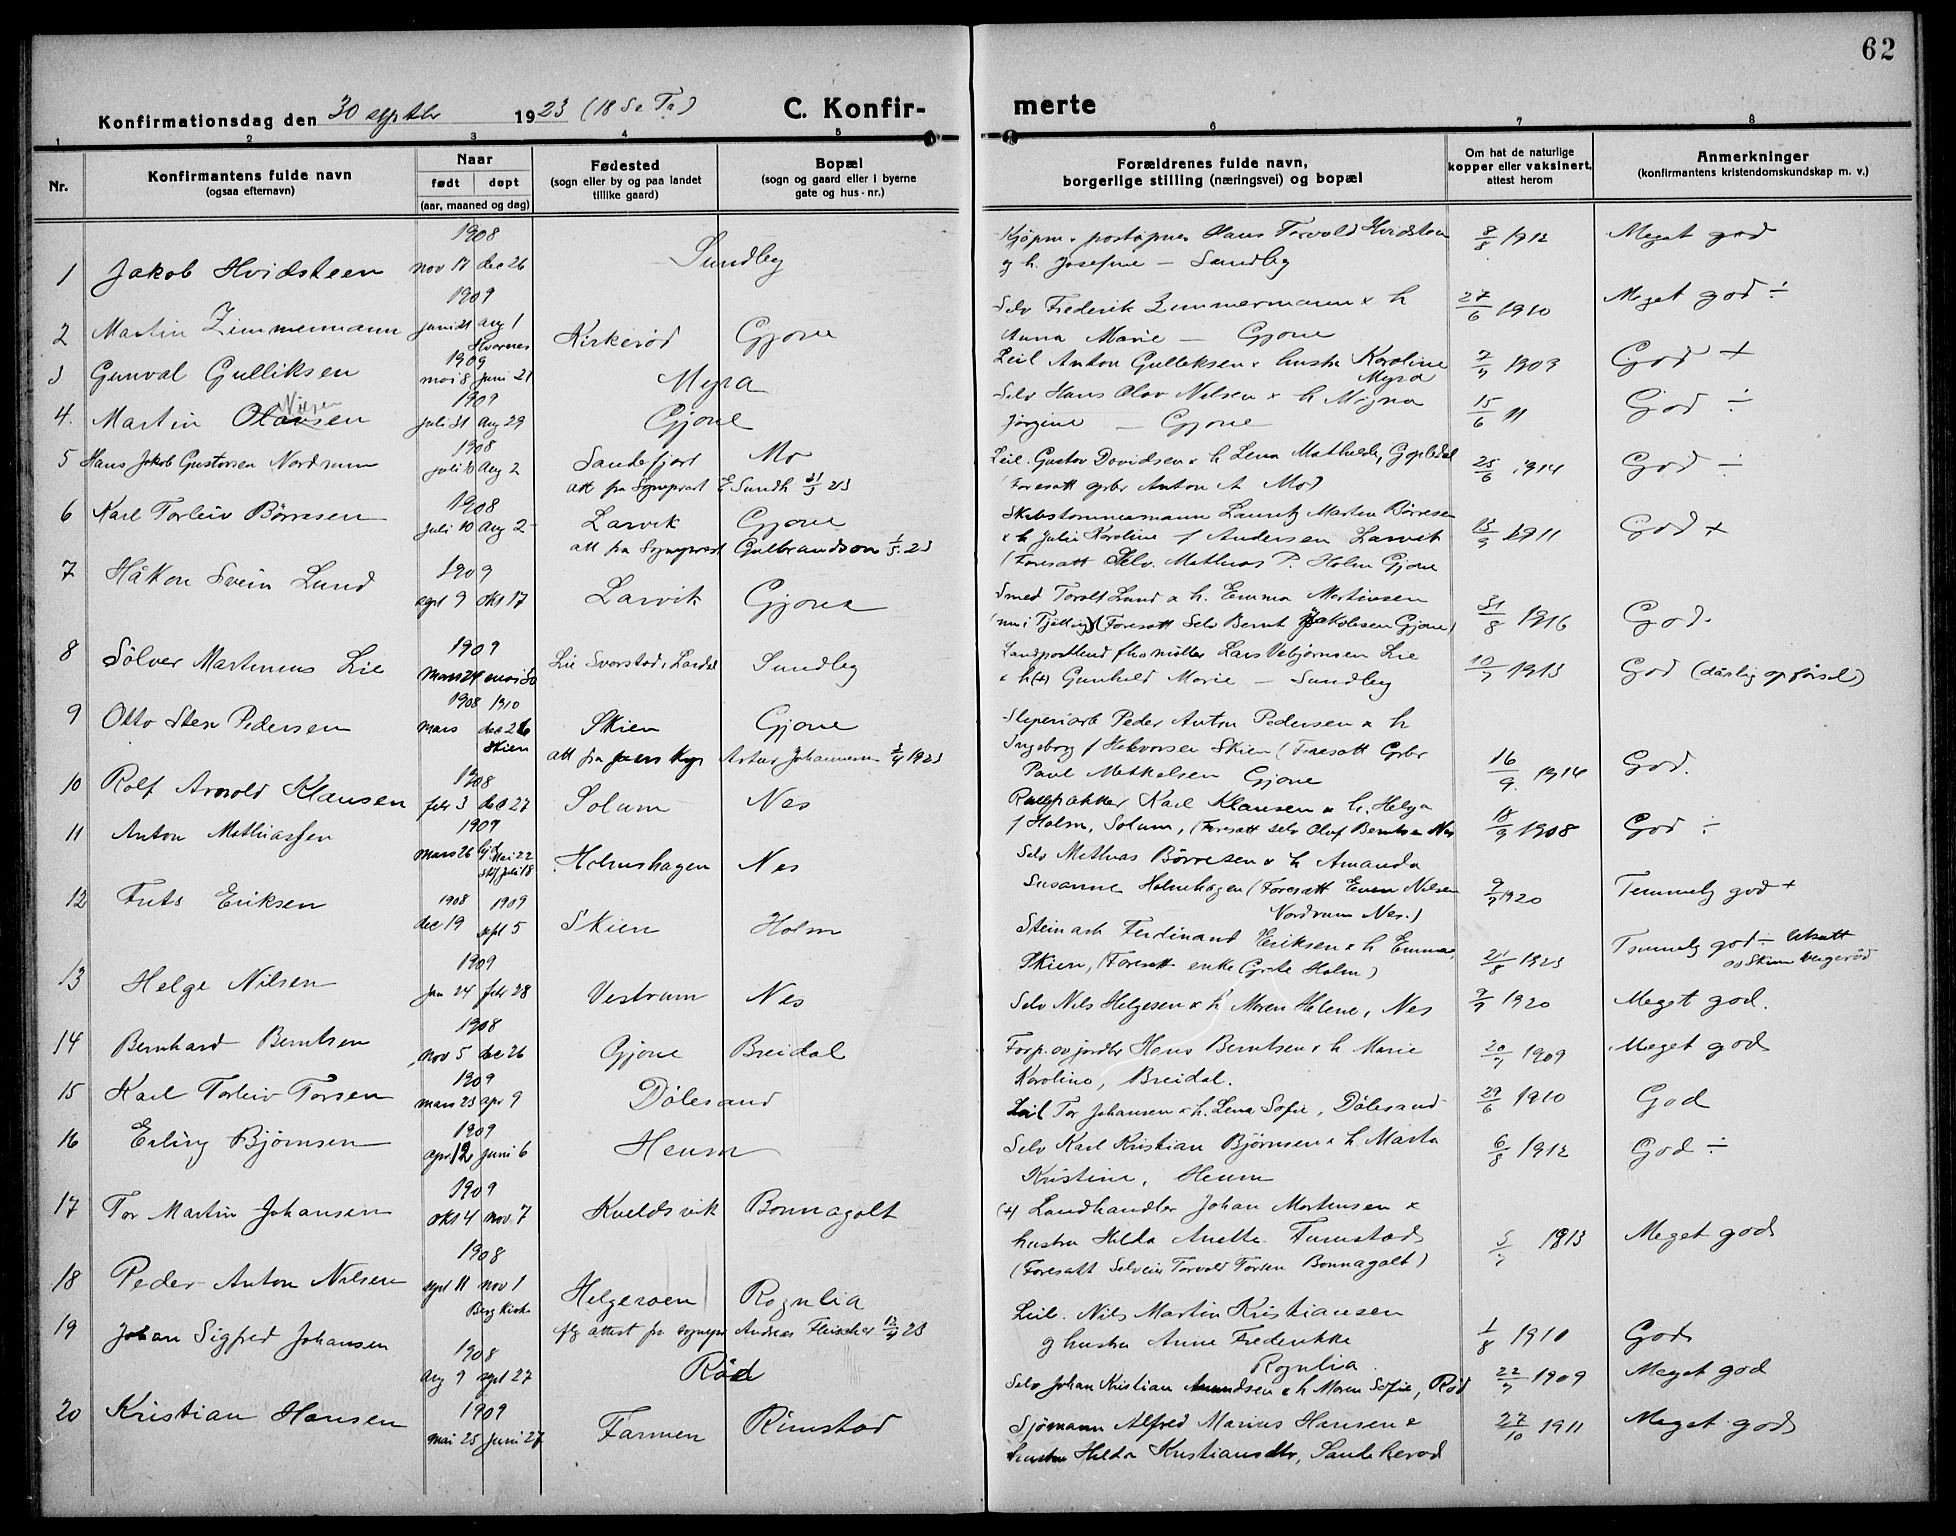 62
Konfirmationsdag den 30 septbr 1923 (18 S e Tr) C. Konfir- merte
1 2 3 4 5 6 7 8
Nr. Konfirmantens fulde navn (ogsaa efternavn) Naar født døpt (aar, maaned og dag) Fødested (sogn eller by og paa landet tillike gaard) Bopæl (sogn og gaard eller i byerne gate og hus-nr.) Forældrenes fulde navn, borgerlige stilling (næringsvei) og bopæl Om hat de naturlige kopper eller vaksinert, attest herom Anmerkninger (konfirmantens kristendomskundskap m. v.)
1908 Kjøpm. & postaapner Hans Torvald Hvidsteen 8/8 1912 Meget god
1 Jakob Hvidsteen nov 17 dec 26 Sundby og h. Josefine — Sundby
1909 Selv Frederik Zimmermann & h 27/6 1910 Meget god ÷
2 Martin Zimmermann juni 21 aug 1 Hvarnes Kirkerød Gjone Anna Marie — Gjone
1909 Leil Anton Gulliksen & hustru Karoline 7/7 1909 God +
3 Gunval Gulliksen mai 8 juni 21 Myra Myra
1909 Selv Hans Olav Nilsen & h Magna 15/6 11 God ÷
4. Martin Olavsen Nilsen juli 31 aug 29 Gjone Jørgine — Gjone
1908
5 Hans Jakob Gustavsen Nordrum juli 10 aug 2 Sandefjort Mo Leil. Gustav Davidsen & h Lena Mathilde, Gopledal 25/6 1914 God ÷
att fra Sogneprest E. Sundh 21/3 23 (Foresatt grbr Anton A. Mo)
1908 Skibstømmermann Lauritz Martin Børresen
6 Karl Torleiv Børresen juli 10 aug 2 Larvik Gjone & h Julie Karoline f Andersen Larvik 13/9 1911 God +
att fra Sogneprest Gulbrandson 1/5 23 (Foresatt Selv. Mathias P. Holm Gjone
7 Håkon Svein Lund 1909 sept 9 okt 17 Larvik Gjone Smed Toralf Lund & h. Emma Martinsen 31/8 1916 God.
(nu i Tjølling) (Foresatt Selv Bernt Jakobsen Gjone)
8 Sølver Martinius Lie 1909 mars 24 mai 30 Lie Svarstad, Lardal Sundby Landpostbud Lars Vebjørnsen Lie 10/7 1913 God (dårlig opførsel)
& h (+) Gunhild Marie — Sundby
1908 1910
9 Otto Sten Pedersen mars dec 26 Skien Skien Gjone Sliperiarb Peder Anton Pedersen & h
Ingeborg f Halvorsen Skien (Foresatt Grbr 16/9. 1914 God.
att fra pers kap Artur Johannesen 1923 Paul Mathelsen Gjone
10 Rolf Arvold Klausen 1908 febr 3 dec 27 Solum Nes Karl Klausen & h. Helga
f Holm, Solum, (Foresatt selv Oluf Berntsen Nes 18/9 1908 God ÷
11 Anton Mathiassen 1909 mars 26 mai 22 juli 18 Holmshagen Nes Selv Mathias Børresen & h Amanda
Susanne Holmhagen (Foresatt Even Nilsen 9/7 1920 Temmelig god +
Nordrum Nes.)
12 Frits Eriksen 1908 1909 dec 19 sept 5 Skien Holm Steinarb Ferdinand Eriksen & h Emma
Skien, (Foresatt enke Grete Holm) 21/8 1923 Temmelig god ÷
13 Helge Nilsen 1909 jan 24 febr 28 Vestrum Nes Selv Nils Helgesen & h Maren Helene, Nes 9/7 1920 Meget god.
14 Bernhard Berntsen 1908 nov 5 dec 26 Gjone Breidal Forp. av jordbr Hans Berntsen & h Marie 20/7 1909 Meget god
Karoline, Breidal.
15 Karl Torleiv Torsen 1909 mars 23 apr 9 Dølesand Leil Tor Johansen & h. Lena Sofie, Dølesand 29/6 1910 God
16 Erling Bjørnsen 1909 apr 12 juni 6 Heum Selv Karl Kristian Bjørnsen & h. Marta 6/8 1912 God ÷
Kristine, Heum
17 Tor Martin Johansen 1909 okt 4 nov 7 Kveldsvik Bonnagolt (+) Landhandler Johan Martinsen &
hustru Hilda Anette Furustad 5/7 1913 Meget god
(Foresatt Selveier Torvald Torsen Bonnagolt)
18 Peder Anton Nilsen 1908 sept 11 nov 1 Berg Kirke Helgeroen Rognlia Leil. Nils Martin Kristiansen
flg attest fra sognepr Andreas Fleischer 23 og hustru Anne Fredrikke 1/8 1910 God
Rognlia.
19 Johan Sigfred Johansen 1908 aug 9 sept 27 Rød Selv Johan Kristian Amundsen & h Maren Sofie, Rød 22/7 1909 Meget god
20 Kristian Hansen 1909 mai 25 juni 27 Farmen Rimstad Sjømann Alfred Marius Hansen & 27/10 1911 Meget god
hustru Hilda Kristiansdtr, Sandkerød